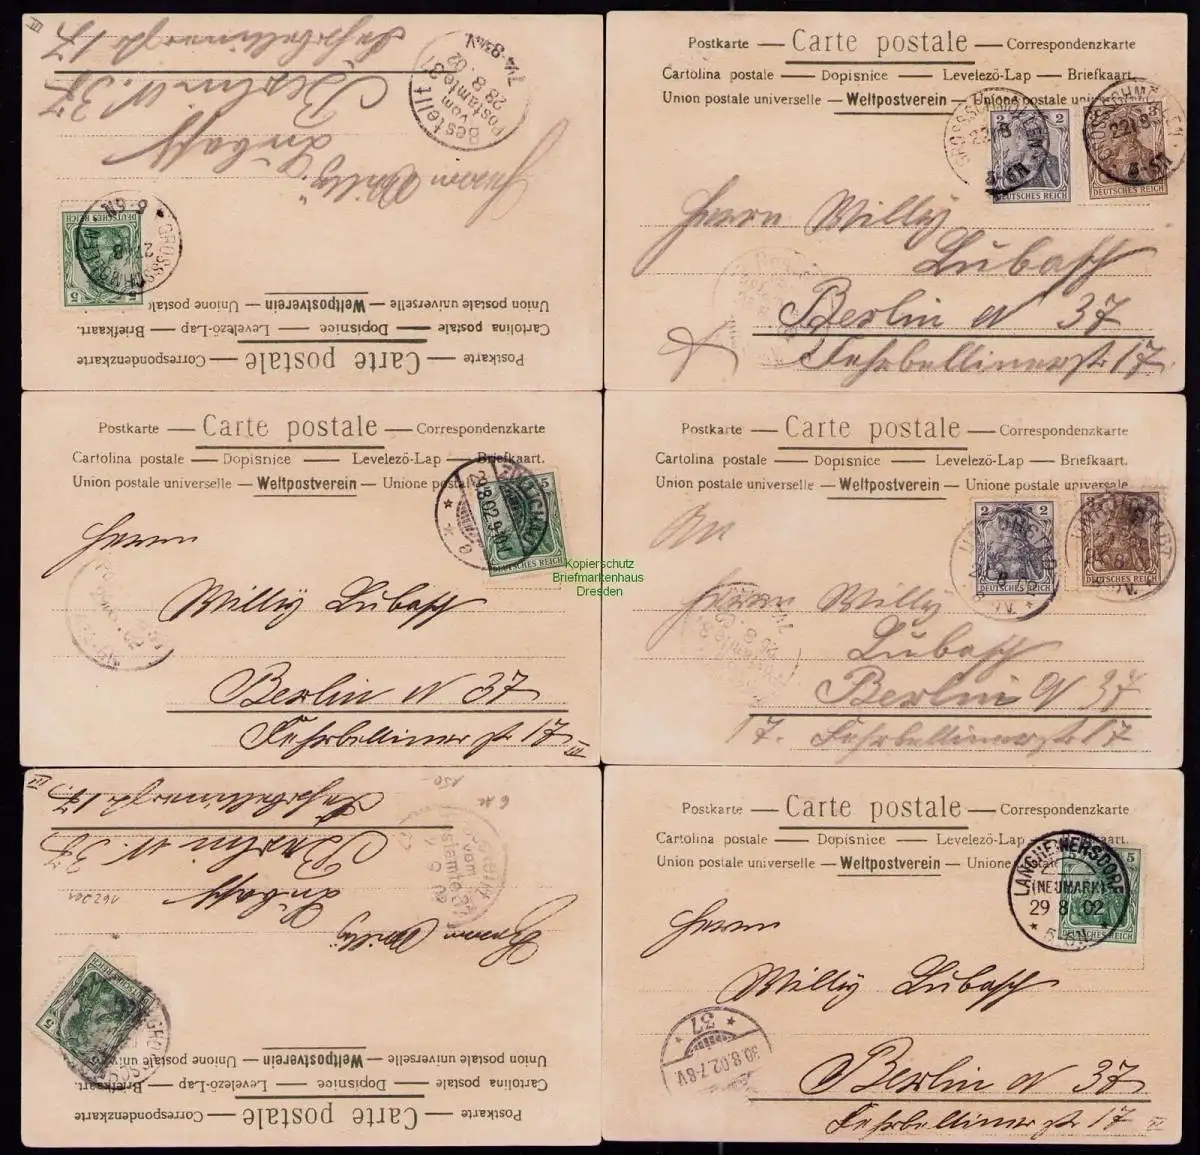 Fehrbellinerstr 17.
Berlin N. 37
Lubasch
Herrn Willy
Bestellt
vom
Postamte 37
28 8. 02
7¼-8½N.
5
DEUTSCHES REICH
GROSSSCHMÖLLEN
27 8
5-6N
Union postale universelle — Weltpostverein — Unione postale
Cartolina postale — Dopisnice — Levelező-Lap — Briefkaart.
Postkarte — Carte postale — Correspondenzkarte
Postkarte — Carte postale — Correspondenzkarte
Cartolina postale — Dopisnice — Levelező-Lap — Briefkaart.
Union postale universelle — Weltpostverein — Unione postale universale
2
3
DEUTSCHES REICH
DEUTSCHES REICH
GROSSSCHMÖLLEN
22/8
GROSSSCHMÖLLEN
22/8
Herrn Willy
Lubasch
Berlin N 37
Fehrbellinerstr 17.
Postkarte — Carte postale — Correspondenzkarte
Cartolina postale — Dopisnice — Levelező-Lap — Briefkaart.
Union postale universelle — Weltpostverein — Unione postale
5
DEUTSCHES REICH
ZÜLLICHAU
29.8.02.9-10V
Herrn
Willy Lubasch
Berlin N 37
Fehrbellinerstr 17.
III
Kopierschutz
Briefmarkenhaus
Dresden
Postkarte — Carte postale — Correspondenzkarte
Cartolina postale — Dopisnice — Levelező-Lap — Briefkaart.
Union postale universelle — Weltpostverein — Unione postale universale
2
3
DEUTSCHES REICH
DEUTSCHES REICH
An
Herrn Willy
Lubasch
Berlin N 37
17. Fehrbellinerstr 17
III
150
6 M
Fehrbellinerstr 17.
Berlin N. 37
Lubasch
Herrn Willy
Bestellt
vom
Postamte
5
DEUTSCHES REICH
Union postale universelle — Weltpostverein — Unione postale universale
Cartolina postale — Dopisnice — Levelező-Lap — Briefkaart.
Postkarte — Carte postale — Correspondenzkarte
Postkarte — Carte postale — Correspondenzkarte
Cartolina postale — Dopisnice — Levelező-Lap — Briefkaart.
Union postale universelle — Weltpostverein — Unione postale
5
DEUTSCHES REICH
LANGHEINERSDORF
(NEUMARK)
29 8. 02
5-6N
Herrn
Willy Lubasch
37
30.8.02.7-8V.
Berlin N 37
Fehrbellinerstr 17